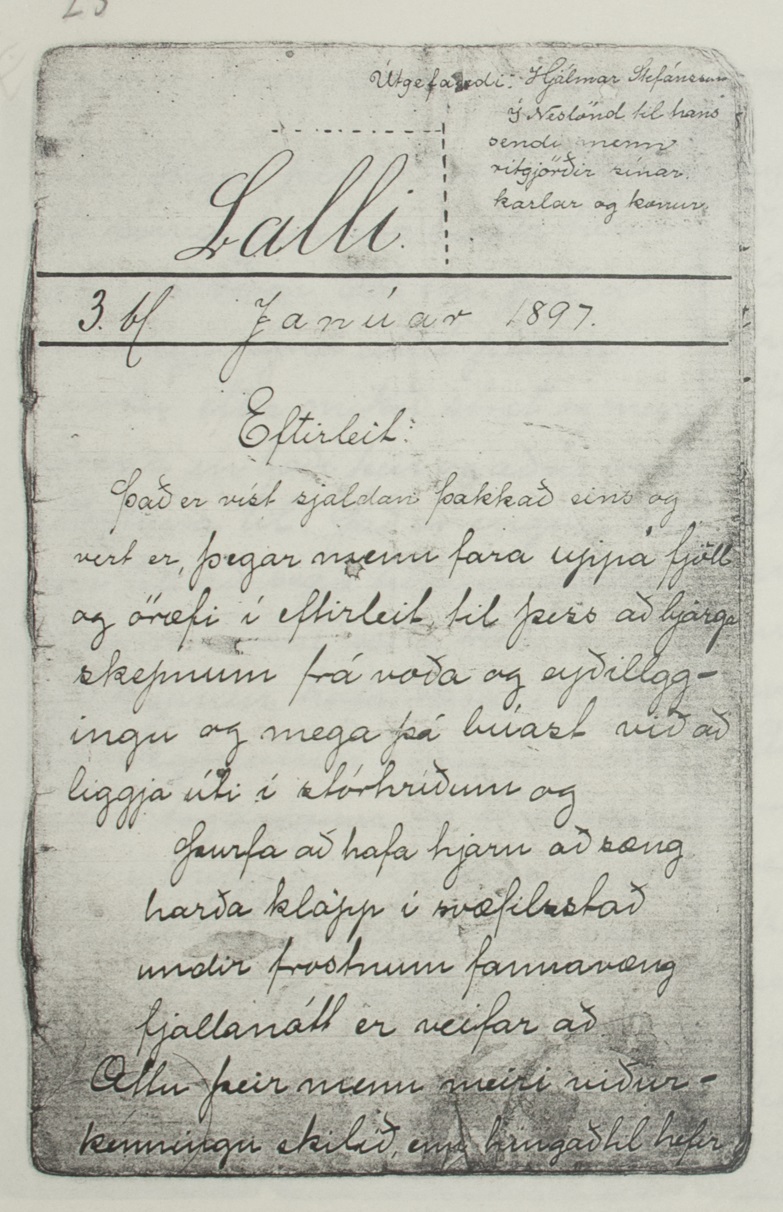 25
Útgefandi: Hjálmar Stefánsson
Í Neslönd til hans
sendi menn
ritgjörðir sínar.
karlar og konur.
Lalli.
3. bl Janúar 1897.
Eftirleit:
Það er víst sjaldan þakkað eins og
vert er, þegar menn fara uppá fjöll
og öræfi í eftirleit, til þess að bjarga
skepnum frá voða og eyðilegg-
ingu og mega þá búast við að
liggja úti í stórhríðum og
Þurfa að hafa hjarn að sæng
harða klöpp í svæfilsstað
undir frostnum fannavæng
fjallanátt er veifar að
Ættu þeir menn meiri viður-
kenningu skilið, enn hingaðtil hefir